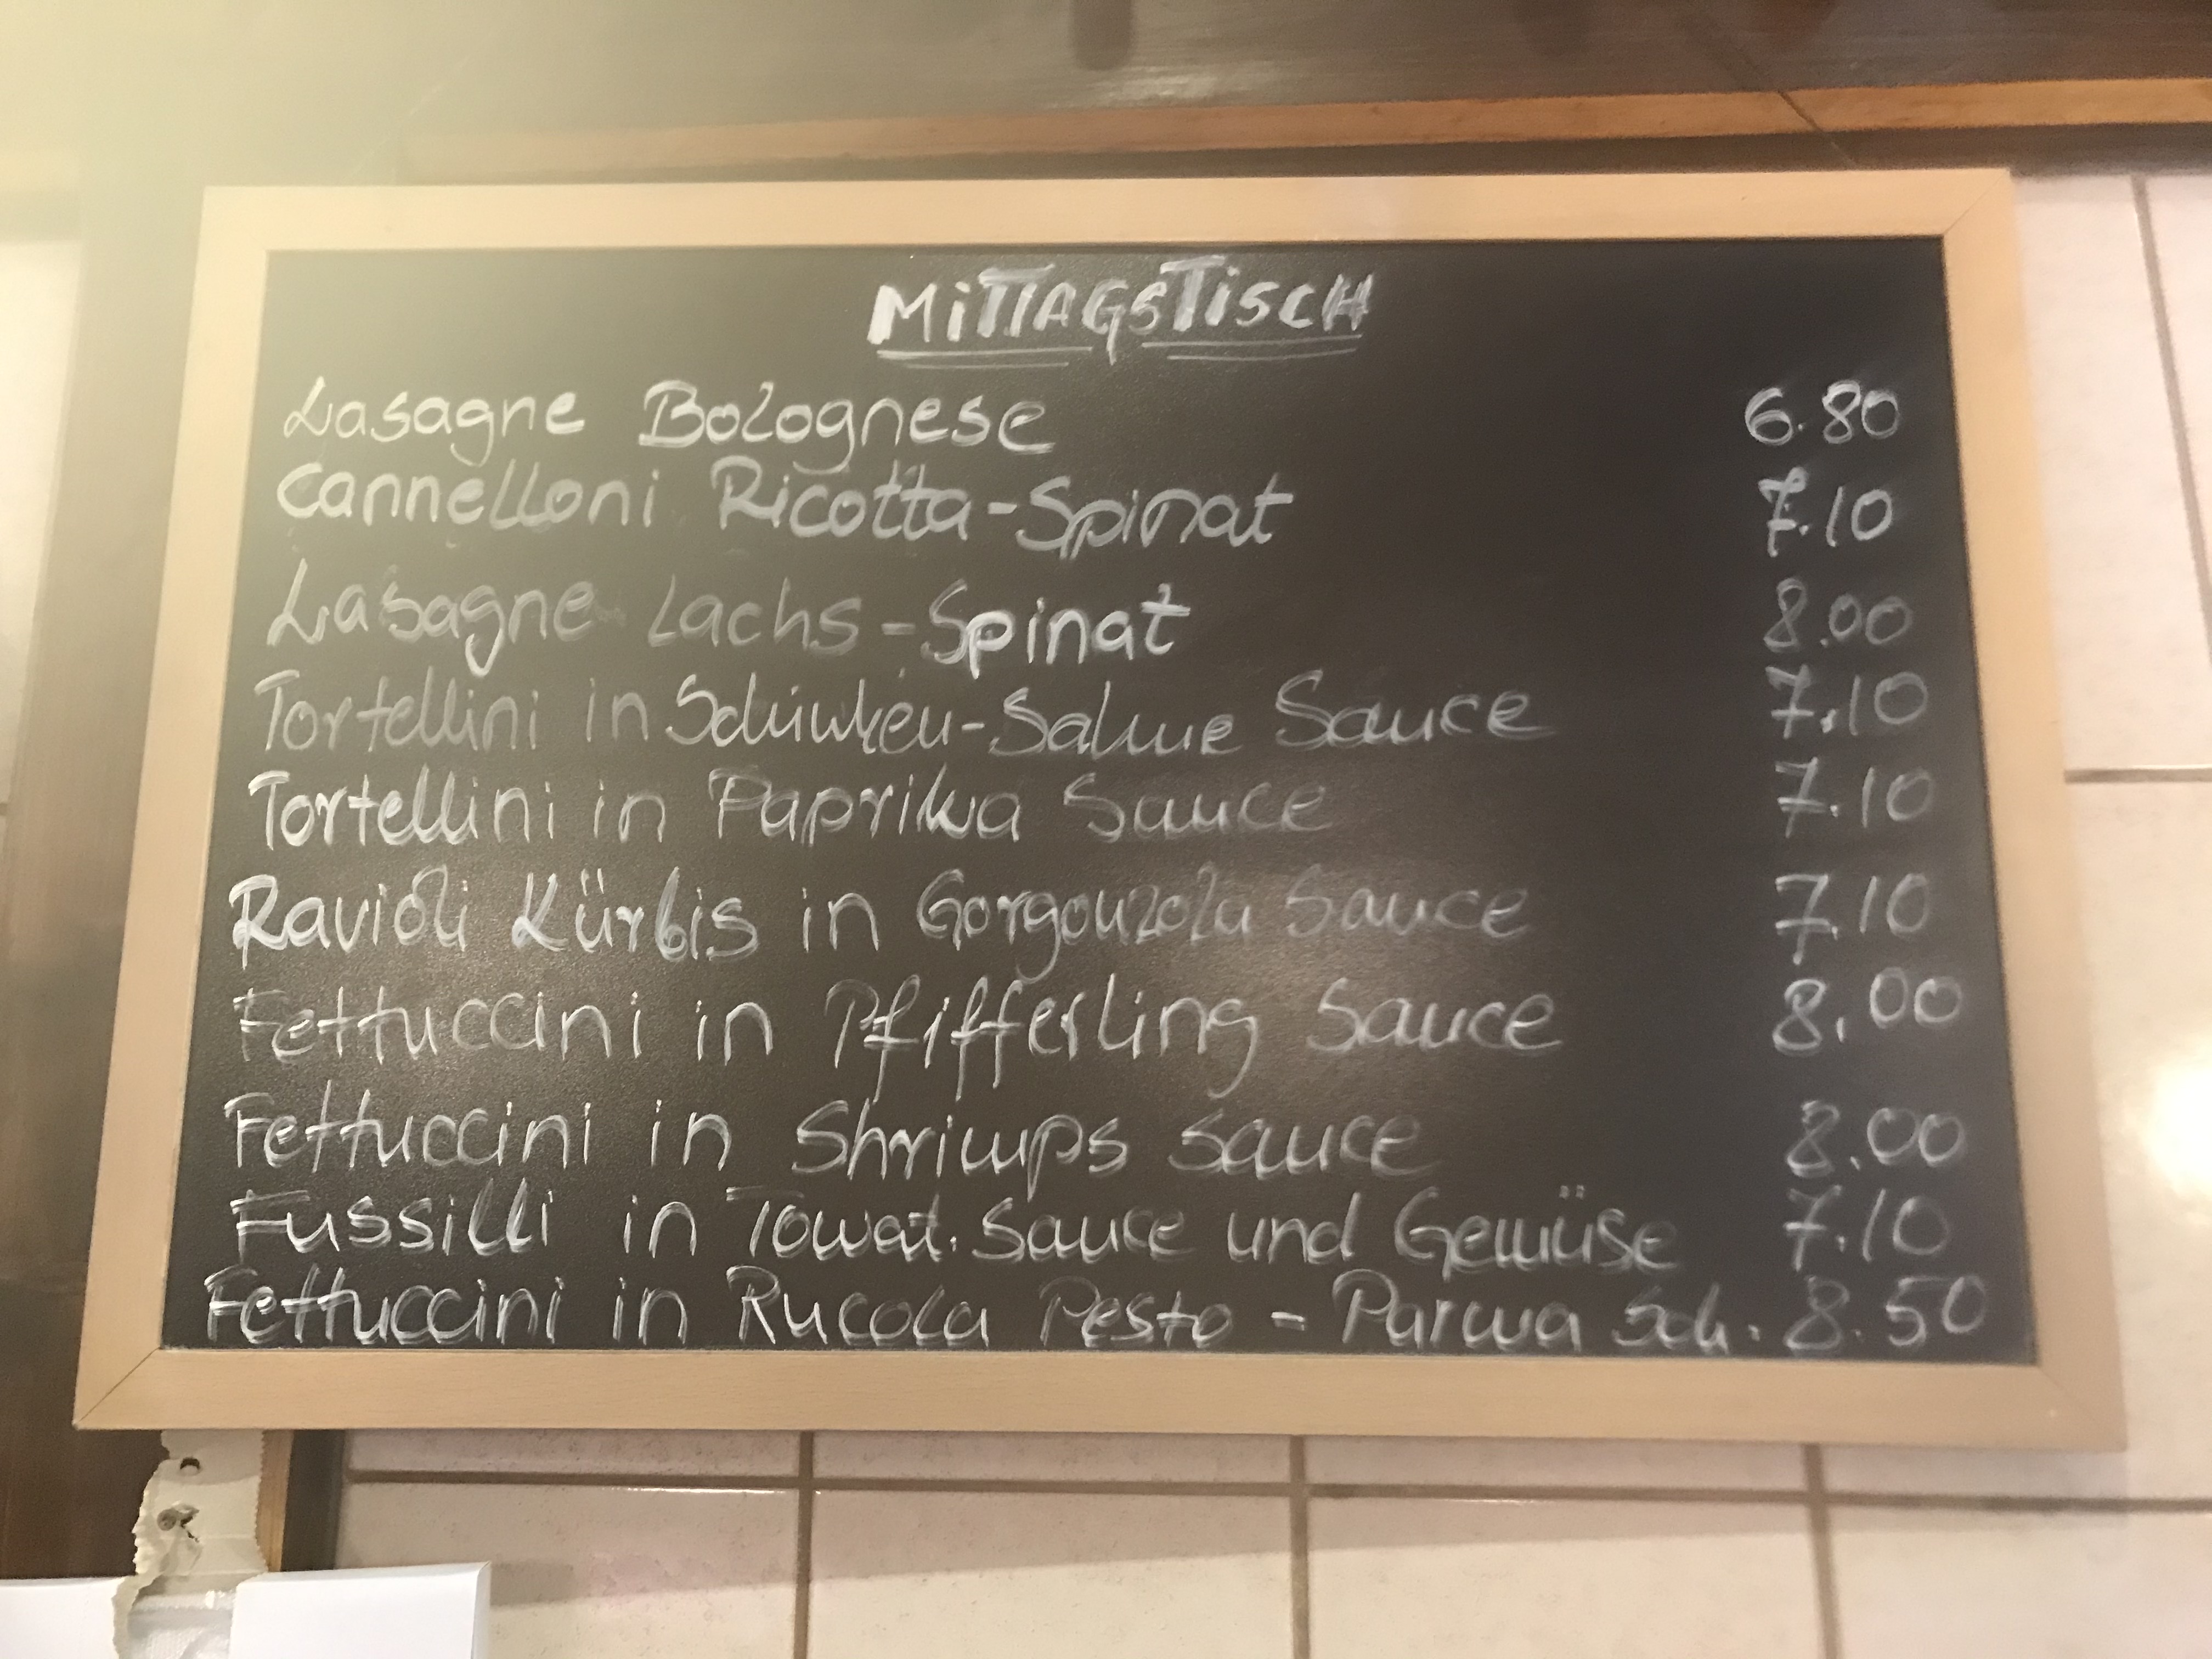 MiTTAGSTiSCH
Lasagne Bolognese 6.80
Cannelloni Ricotta-Spinat 7.10
Lasagne Lachs-Spinat 8.00
Tortellini in Schinken-Sahne Sauce 7.10
Tortellini in Paprika Sauce 7.10
Ravioli Kürbis in Gorgonzola Sauce 7.10
Fettuccini in Pfifferling Sauce 8.00
Fettuccini in Shrimps Sauce 8.00
Fussilli in Tomat. Sauce und Gemüse 7.10
Fettuccini in Rucola Pesto - Parma Sch. 8.50